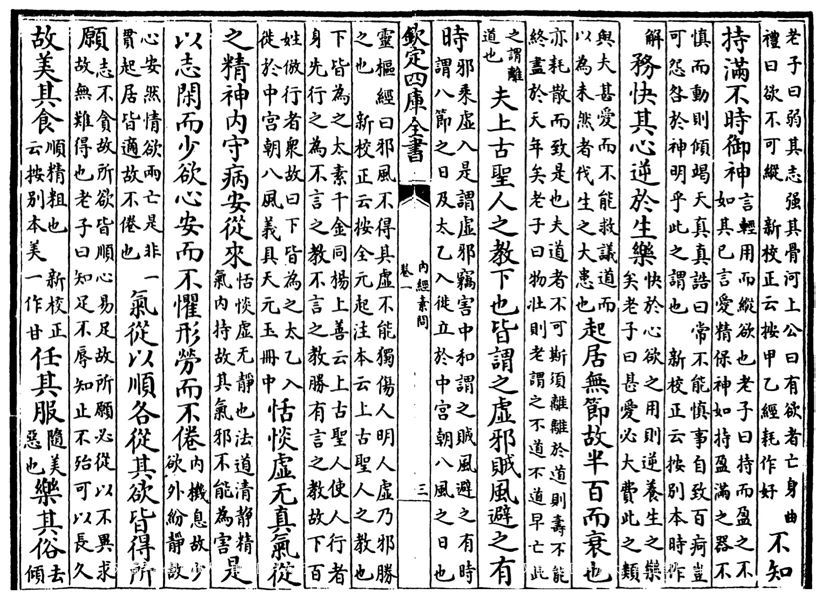 老子曰弱其志强其骨河上公曰有欲者亡身曲
禮曰欲不可縱 新校正云按甲乙經耗作好
不知
持滿不時御神
言輕用而縱欲也老子曰持而盈之不
如其已言愛精保神如持盈滿之器不
慎而動則傾竭天真真誥曰常不能慎事自致百痾豈
可怨咎於神明乎此之謂也 新校正云按别本時作
解
務快其心逆於生樂
快於心欲之用則逆養生之樂
矣老子曰甚愛必大費此之類
與夫甚愛而不能救議道而
以為未然者伐生之大患也
起居無節故半百而衰也
亦耗散而致是也夫道者不可斯須離離於道則壽不能
終盡於天年矣老子曰物壯則老謂之不道不道早亡此
之謂離
道也
夫上古聖人之教下也皆謂之虚邪賊風避之有
時
邪乗虚入是謂虚邪竊害中和謂之賊風避之有時
謂八節之日及太乙入徙立於中宫朝八風之日也
欽定四庫全書
内經素問
卷一
三
靈樞經曰邪風不得其虚不能獨傷人明人虚乃邪勝
之也 新校正云按全元起注本云上古聖人之教也
下皆為之太素千金同楊上善云上古聖人使人行者
身先行之為不言之教不言之教勝有言之教故下百
姓倣行者衆故曰下皆為之太乙入
徙於中宫朝八風義具天元玉冊中
恬惔虚无真氣從
之精神内守病安從來
恬惔虚无靜也法道清靜精
氣内持故其氣邪不能為害
是
以志閑而少欲心安而不懼形勞而不倦
内機息故少
欲外紛靜故
心安然情欲兩亡是非一
貫起居皆適故不倦也
氣從以順各從其欲皆得所
願
志不貪故所欲皆順心易足故所願必從以不異求
故無難得也老子曰知足不辱知止不殆可以長久
故美其食
順精粗也 新校正
云按别本美一作甘
任其服
隨美
惡也
樂其俗
去
傾